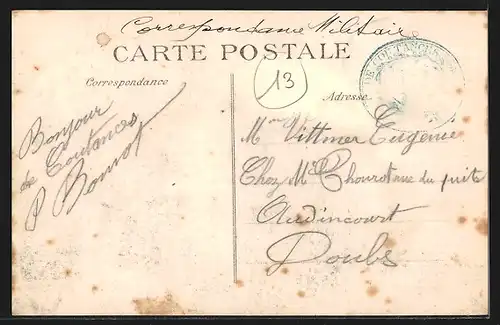 Correspondance Militaire
CARTE POSTALE
Correspondance
Adresse
13
DE COUTANCES
Bonjour
de Coutances
P Bonnot
Mme Vittmer Eugenie
Chez Mr Chourot rue du puits
Audincourt
Doubs